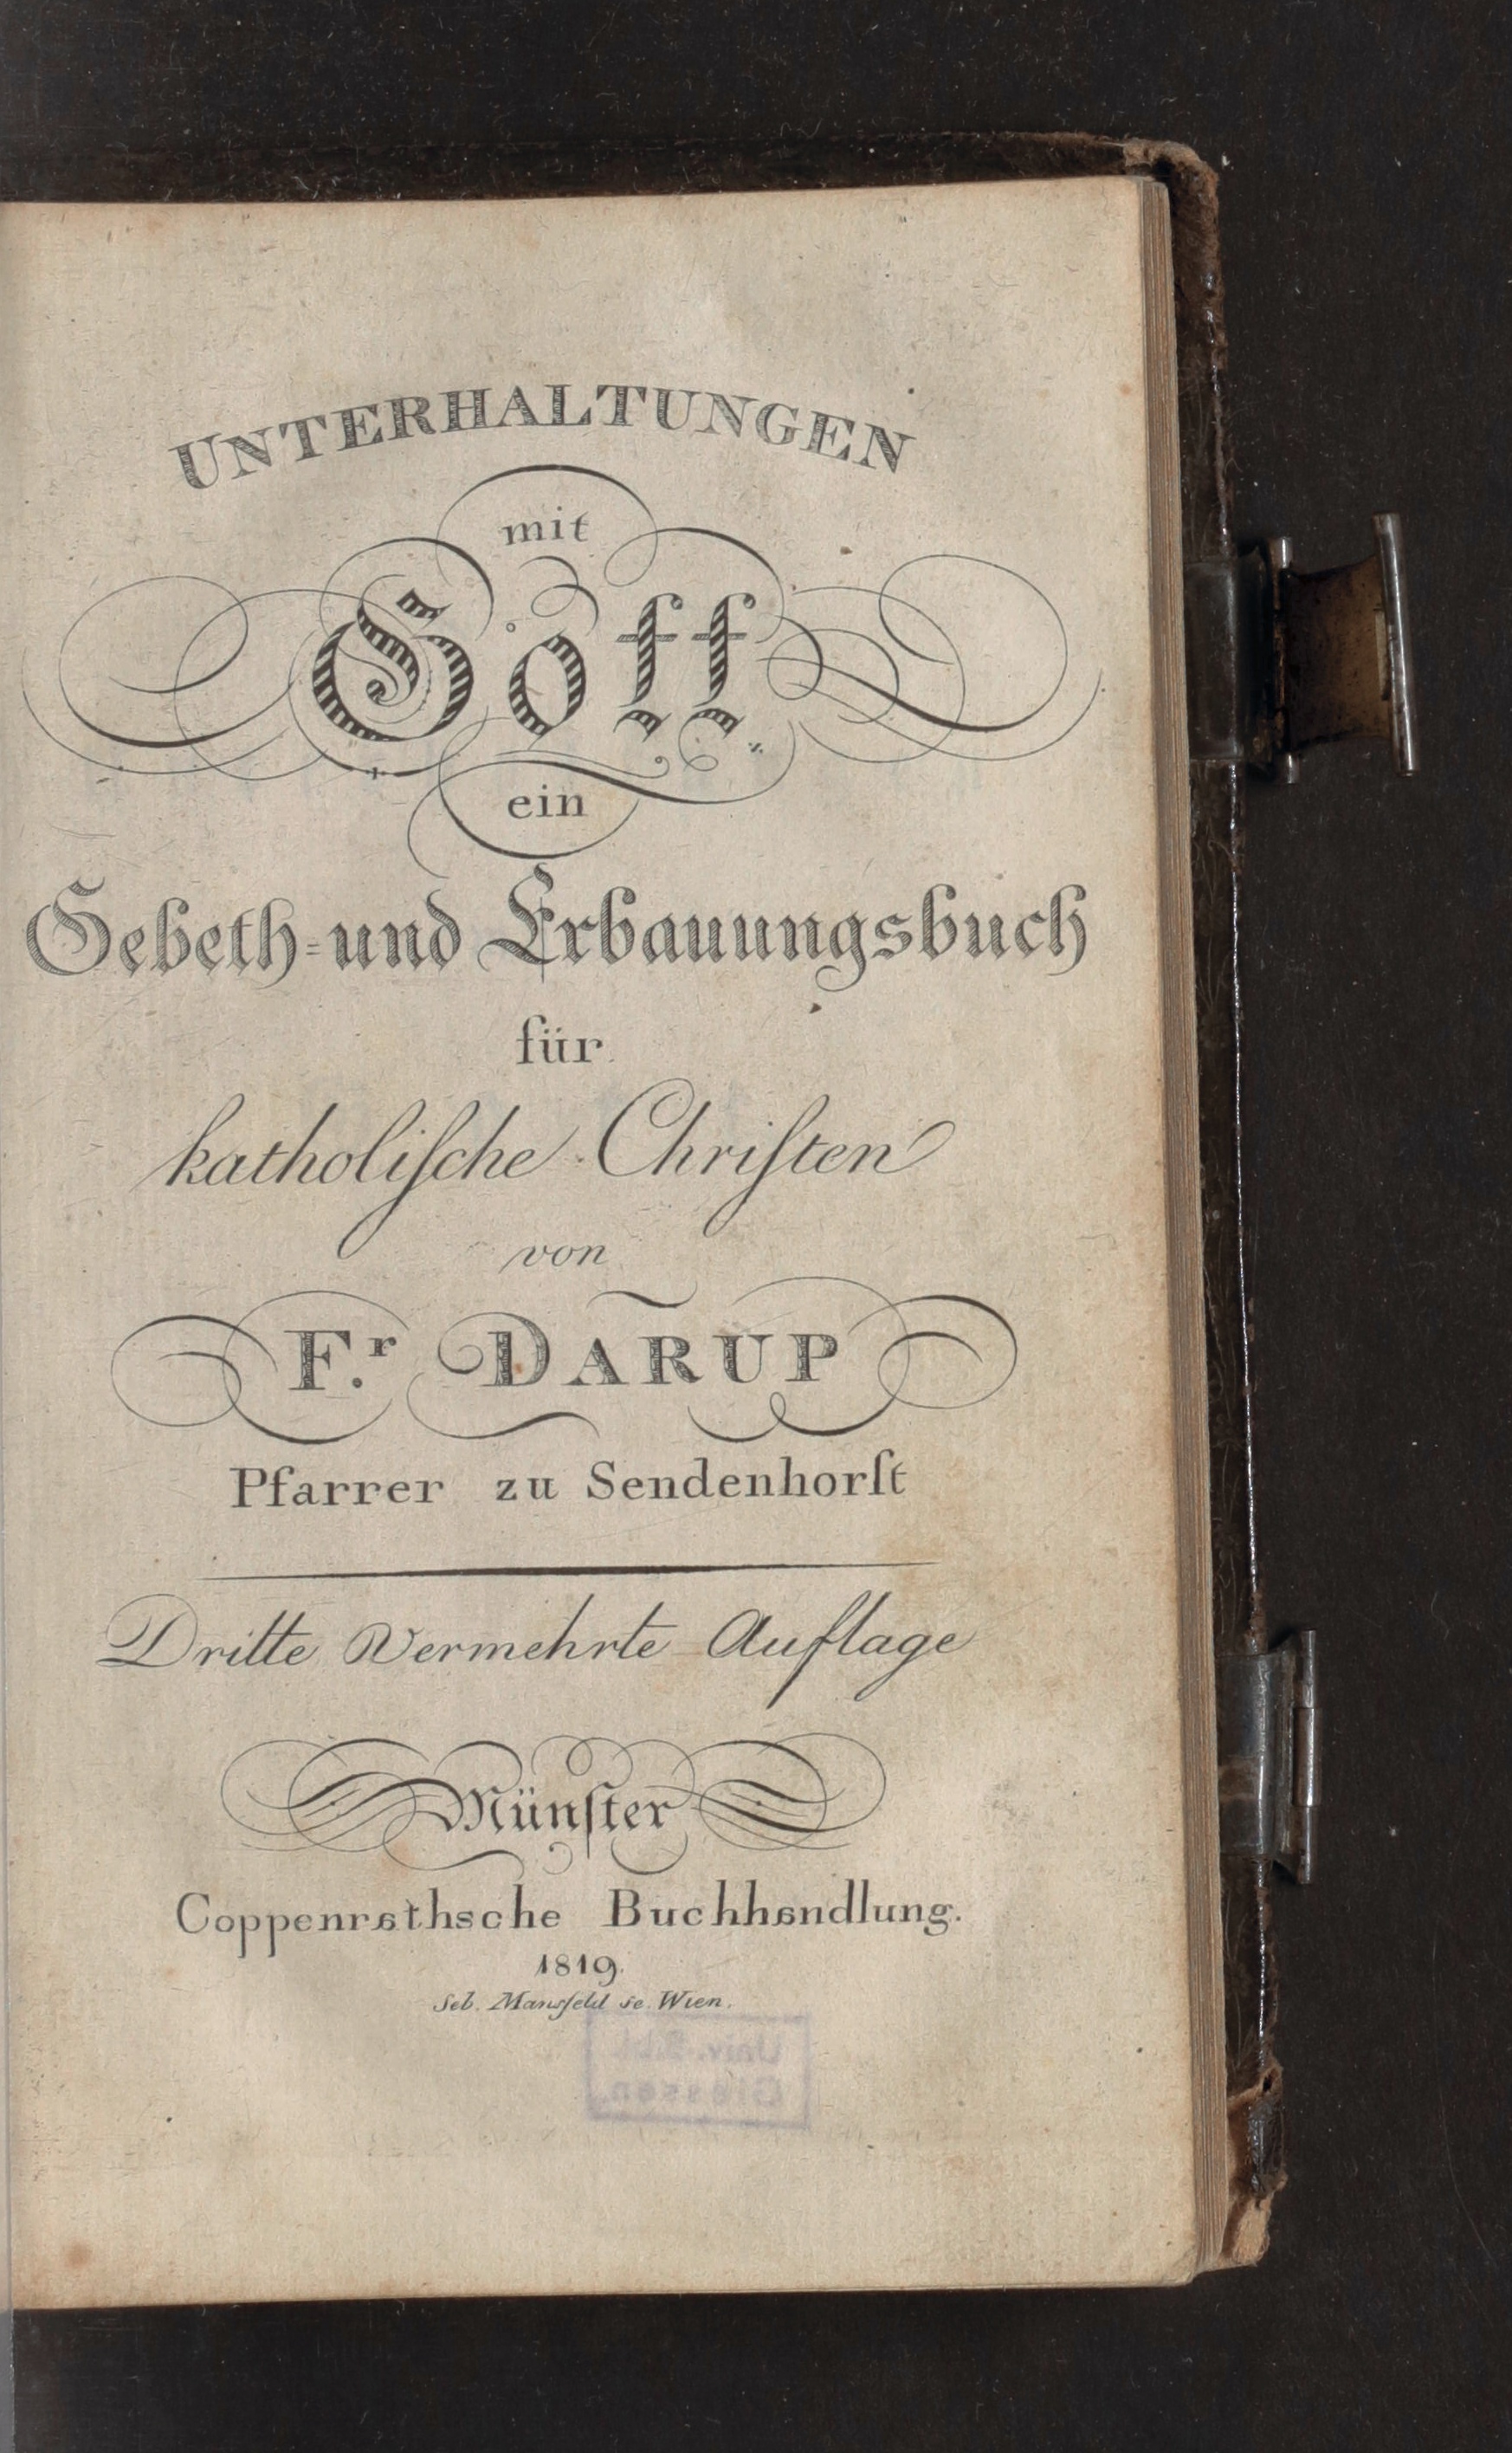 UNTERHALTUNGEN
mit
Gott
ein
Gebeth- und Erbauungsbuch
für
katholiſche Chriſten
von
F.r DARUP
Pfarrer zu Sendenhorſt
Dritte Vermehrte Auflage
Münſter
Coppenrathsche Buchhandlung.
1819.
Seb. Mansfeld sc. Wien.
Univ. Bibl.
Giessen